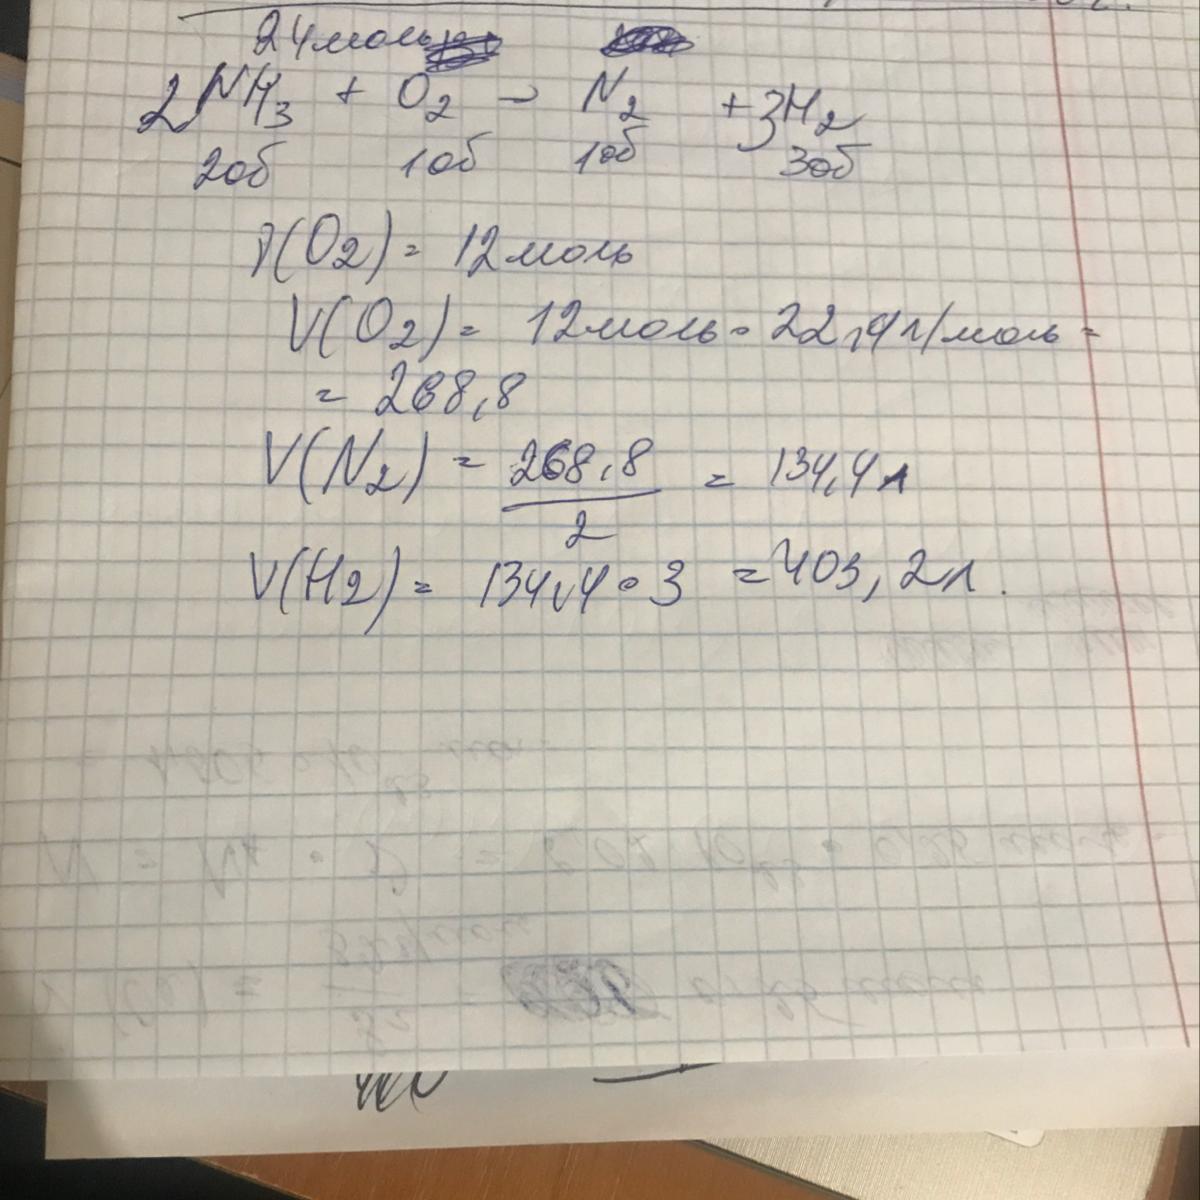 24моль
2NH3 + O2 → N2 + 3H2
2об 1об 1об 3об
ν(O2) = 12моль
V(O2) = 12моль · 22,4л/моль =
= 268,8
V(N2) = 268,8 / 2 = 134,4л
V(H2) = 134,4 · 3 = 403,2л.